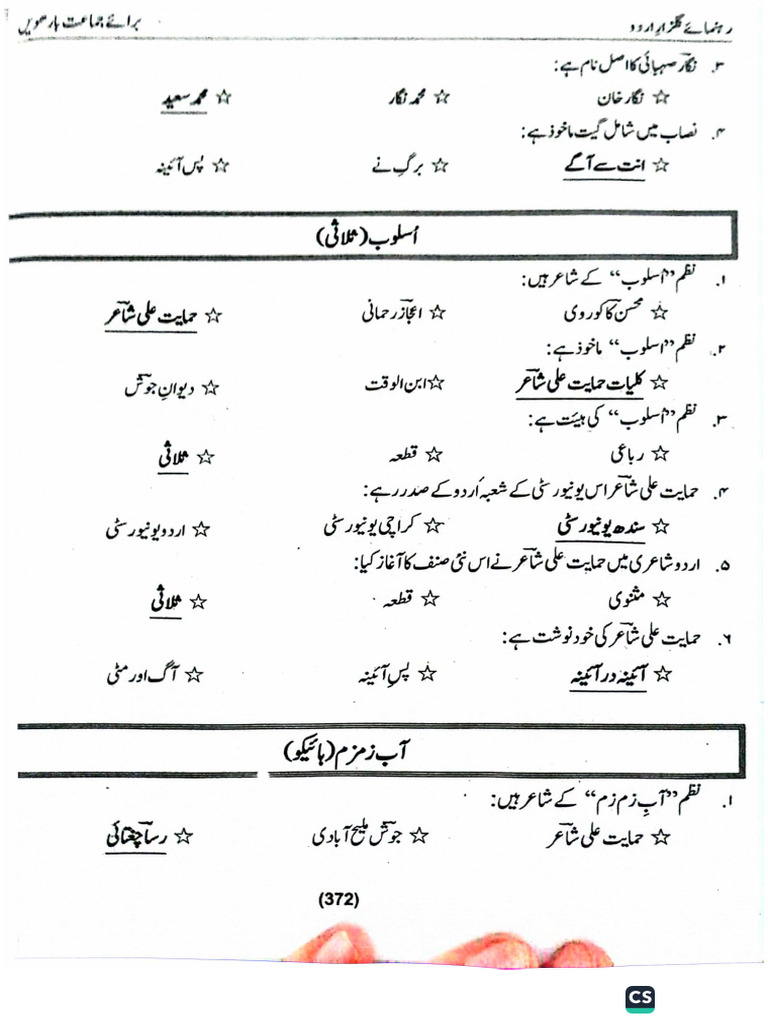 رہنمائے گلزارِ اردو برائے جماعت بارھویں
۳. نگار صہبائی کا اصل نام ہے:
☆ نگار خان ☆ محمد نگار ☆ محمد سعید
۴. نصاب میں شامل گیت ماخوذ ہے:
☆ انت سے آگے ☆ برگِ نے ☆ پس آئینہ
اُسلوب (ثلاثی)
۱. نظم ”اُسلوب“ کے شاعر ہیں:
☆ محسن کاکوروی ☆ اعجاز رحمانی ☆ حمایت علی شاعر
۲. نظم ”اسلوب“ ماخوذ ہے:
☆ کلیات حمایت علی شاعر ☆ ابن الوقت ☆ دیوانِ جوش
۳. نظم ”اُسلوب“ کی ہیئت ہے:
☆ رباعی ☆ قطعہ ☆ ثلاثی
۴. حمایت علی شاعر اس یونیورسٹی کے شعبہ اُردو کے صدر رہے:
☆ سندھ یونیورسٹی ☆ کراچی یونیورسٹی ☆ اردو یونیورسٹی
۵. اردو شاعری میں حمایت علی شاعر نے اس نئی صنف کا آغاز کیا:
☆ مثنوی ☆ قطعہ ☆ ثلاثی
۶. حمایت علی شاعر کی خود نوشت ہے:
☆ آئینہ در آئینہ ☆ پسِ آئینہ ☆ آگ اور مٹی
آب زمزم (ہائیکو)
۱. نظم ”آبِ زم زم“ کے شاعر ہیں:
☆ حمایت علی شاعر ☆ جوش ملیح آبادی ☆ رسا چغتائی
(372)
CS